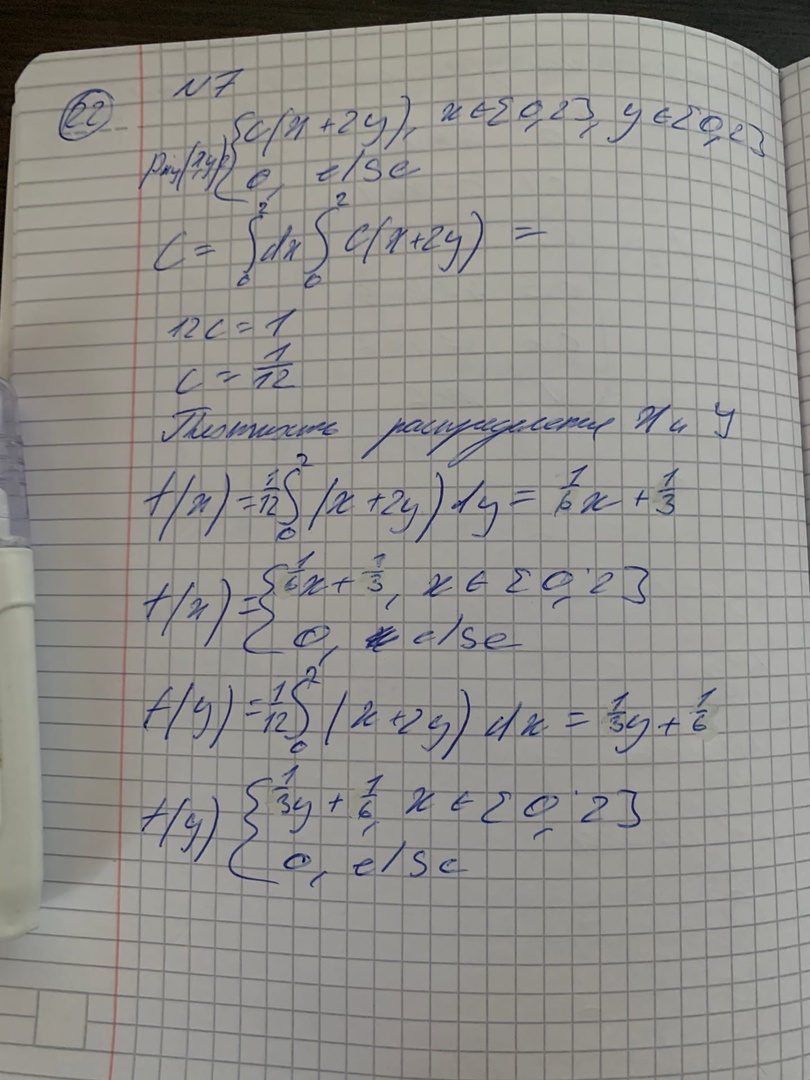 22
N7
P_{xy}(x,y) { c(x+2y), x∈[0,2], y∈[0,2]
0, else
C = ∫_0^2 dx ∫_0^2 C(x+2y) =
12c = 1
c = 1/12
Плотность распределения X и Y
f(x) = 1/12 ∫_0^2 (x+2y) dy = 1/6 x + 1/3
f(x) = { 1/6 x + 1/3, x ∈ [0,2]
0, else
f(y) = 1/12 ∫_0^2 (x+2y) dx = 1/3 y + 1/6
f(y) { 1/3 y + 1/6, x ∈ [0,2]
0, else